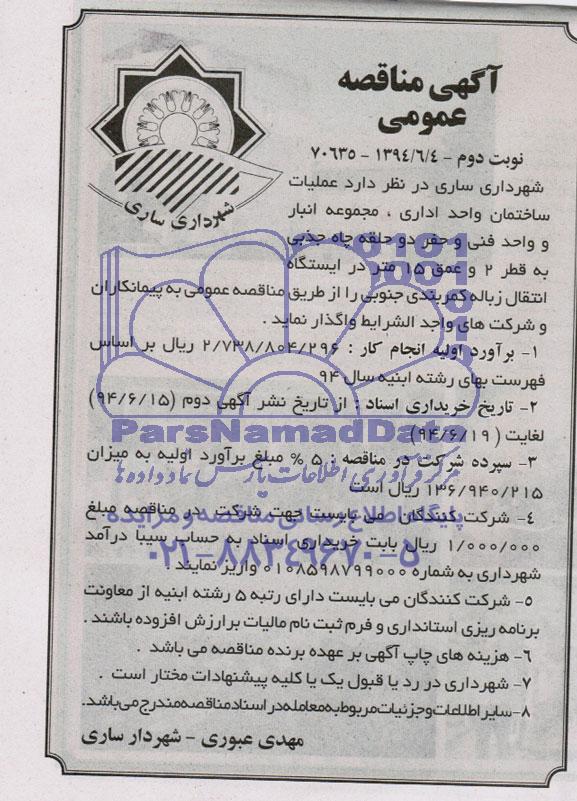 آگهی مناقصه
عمومی
نوبت دوم - ۱۳۹۴/۶/۴ - ۷۰۶۳۵
شهرداری ساری
شهرداری ساری در نظر دارد عملیات
ساختمان واحد اداری ، مجموعه انبار
و واحد فنی و حفر دو حلقه چاه جذبی
به قطر ۲ و عمق ۱۵ متر در ایستگاه
انتقال زباله کمربندی جنوبی را از طریق مناقصه عمومی به پیمانکاران
و شرکت های واجد الشرایط واگذار نماید .
۱- برآورد اولیه انجام کار : ۲/۷۳۸/۸۰۴/۲۹۶ ریال بر اساس
فهرست بهای رشته ابنیه سال ۹۴
۲- تاریخ خریداری اسناد : از تاریخ نشر آگهی دوم (۹۴/۶/۱۵)
لغایت (۹۴/۶/۱۹)
۳- سپرده شرکت در مناقصه : ۵ % مبلغ برآورد اولیه به میزان
۱۳۶/۹۴۰/۲۱۵ ریال است
۴- شرکت کنندگان می بایست جهت شرکت در مناقصه مبلغ
۱/۰۰۰/۰۰۰ ریال بابت خریداری اسناد به حساب سیبا درآمد
شهرداری به شماره ۰۱۰۸۵۹۸۷۹۹۰۰۰ واریز نمایند
۵- شرکت کنندگان می بایست دارای رتبه ۵ رشته ابنیه از معاونت
برنامه ریزی استانداری و فرم ثبت نام مالیات برارزش افزوده باشند .
۶- هزینه های چاپ آگهی بر عهده برنده مناقصه می باشد .
۷- شهرداری در رد یا قبول یک یا کلیه پیشنهادات مختار است .
۸- سایر اطلاعات و جزئیات مربوط به معامله در اسناد مناقصه مندرج می باشد.
مهدی عبوری - شهردار ساری
ParsNamadData
مرکز فرآوری اطلاعات پارس نماد داده ها
پایگاه اطلاع رسانی مناقصه و مزایده
۰۲۱-۸۸۳۴۹۶۷۰-۵